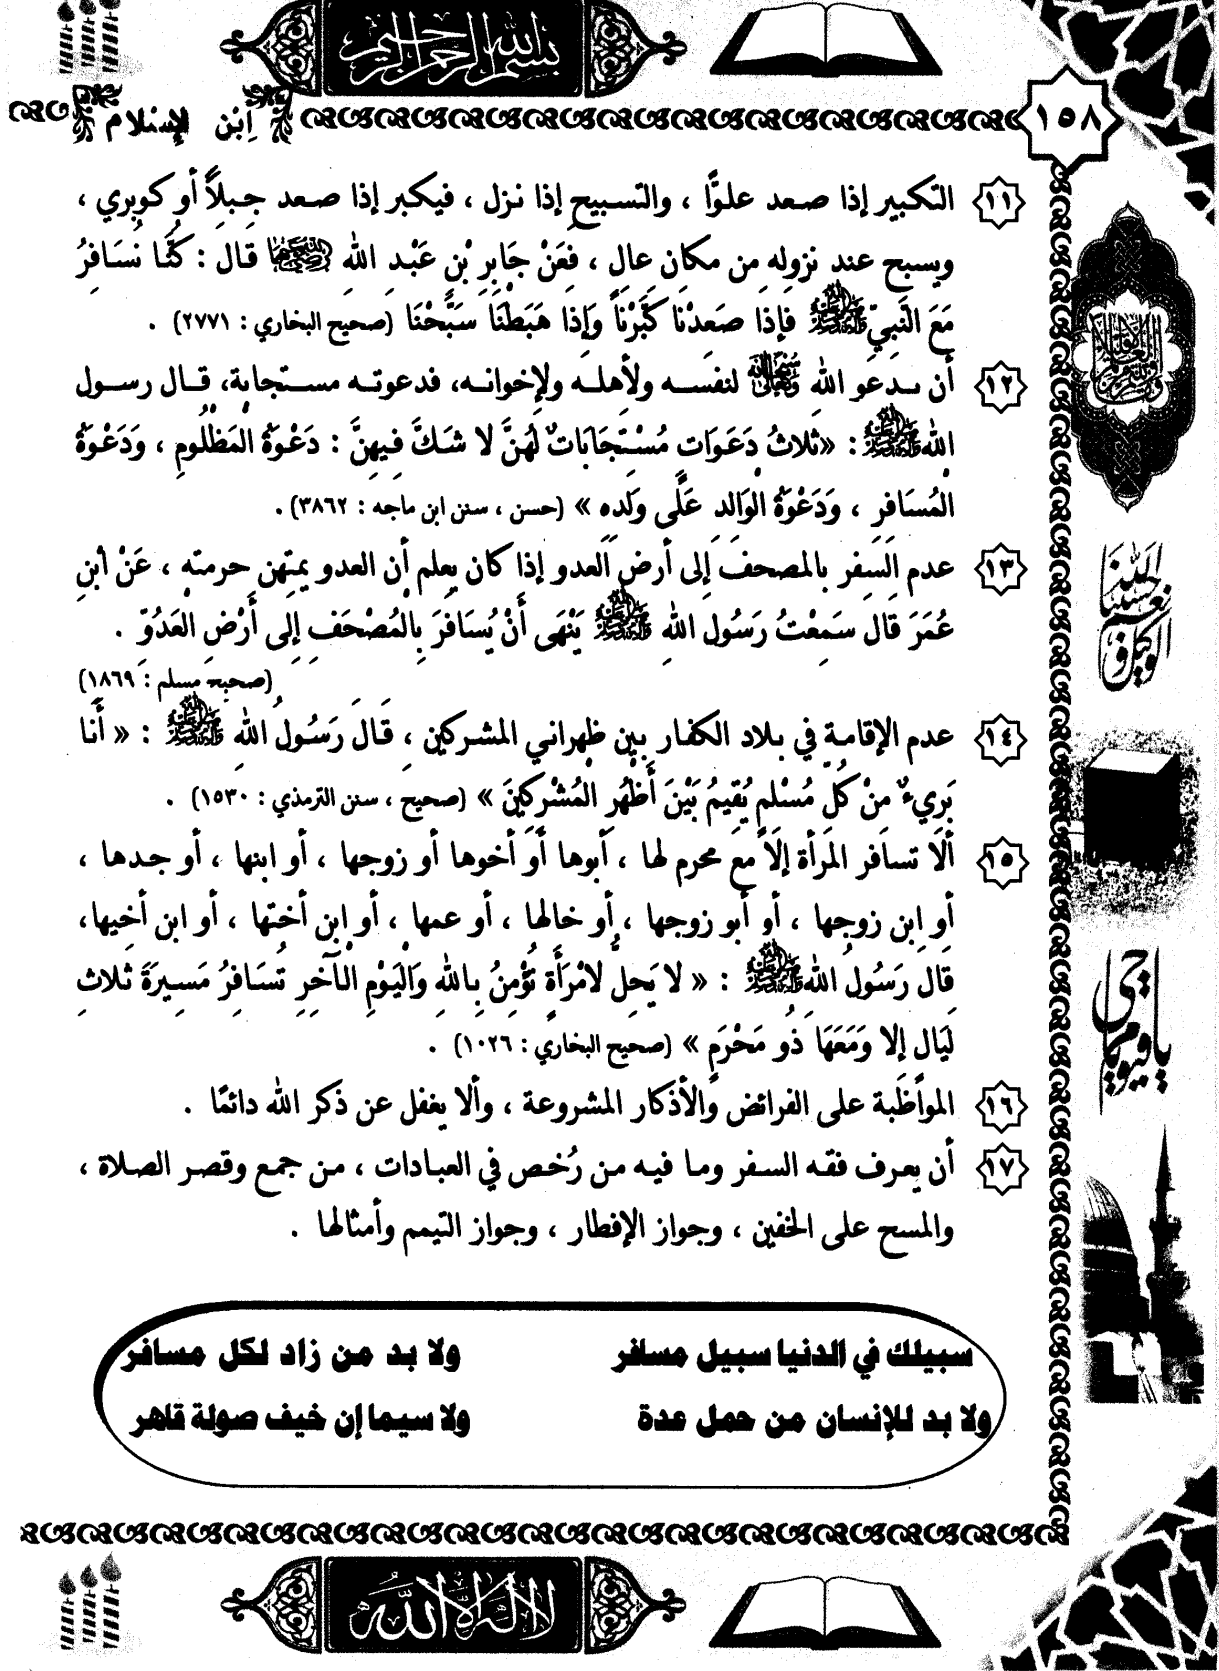 بسم الله الرحمن الرحيم
ابن الإسلام
١٥٨
١١ التكبير إذا صعد علوًّا ، والتسبيح إذا نزل ، فيكبر إذا صعد جبلاً أو كوبري ،
ويسبح عند نزوله من مكان عالٍ ، فعَنْ جَابِرِ بْنِ عَبْدِ اللهِ رضي الله عنهما قال : كُنَّا نُسَافِرُ
مَعَ النَّبِيِّ ﷺ فإذا صَعِدْنَا كَبَّرْنَا وَإِذا هَبَطْنَا سَبَّحْنَا (صحيح البخاري : ٢٧٧١) .
١٢ أن يدعو الله لنفسه ولأهله ولإخوانه، فدعوته مستجابة، قال رسول
الله ﷺ : «ثلاثُ دَعَوَاتٍ مُسْتَجَابَاتٌ لَهُنَّ لا شَكَّ فِيهِنَّ : دَعْوَةُ المَظْلُومِ ، وَدَعْوَةُ
المُسَافِرِ ، وَدَعْوَةُ الوَالِدِ عَلَى وَلَدِهِ » (حسن ، سنن ابن ماجه : ٣٨٦٢) .
١٣ عدم السفر بالمصحف إلى أرض العدو إذا كان يعلم أن العدو يمتهن حرمته ، عَنْ ابنِ
عُمَرَ قال سَمِعْتُ رَسُولَ اللهِ ﷺ يَنْهَى أَنْ يُسَافَرَ بِالمُصْحَفِ إلى أَرْضِ العَدُوِّ .
(صحيح مسلم : ١٨٦٩)
١٤ عدم الإقامة في بلاد الكفار بين ظهراني المشركين ، قَالَ رَسُولُ اللهِ ﷺ : « أَنَا
بَرِيءٌ مِنْ كُلِّ مُسْلِمٍ يُقِيمُ بَيْنَ أَظْهُرِ المُشْرِكِينَ » (صحيح ، سنن الترمذي : ١٥٣٠) .
١٥ ألا تسافر المرأة إلا مع محرم لها ، أبوها أو أخوها أو زوجها ، أو ابنها ، أو جدها ،
أو ابن زوجها ، أو أبو زوجها ، أو خالها ، أو عمها ، أو ابن أختها ، أو ابن أخيها،
قَالَ رَسُولُ اللهِ ﷺ : « لا يَحِلُّ لامْرَأَةٍ تُؤْمِنُ بِاللهِ وَالْيَوْمِ الْآخِرِ تُسَافِرُ مَسِيرَةَ ثلاثِ
لَيَالٍ إلا وَمَعَهَا ذُو مَحْرَمٍ » (صحيح البخاري : ١٠٢٦) .
١٦ المواظبة على الفرائض والأذكار المشروعة ، وألا يغفل عن ذكر الله دائمًا .
١٧ أن يعرف فقه السفر وما فيه من رُخص في العبادات ، من جمع وقصر الصلاة ،
والمسح على الخفين ، وجواز الإفطار ، وجواز التيمم وأمثالها .
سبيلك في الدنيا سبيل مسافر ولا بد من زاد لكل مسافر
ولا بد للإنسان من حمل عدة ولا سيما إن خيف صولة قاهر
حسبنا الله ونعم الوكيل
يا حي يا قيوم
لا إله إلا الله